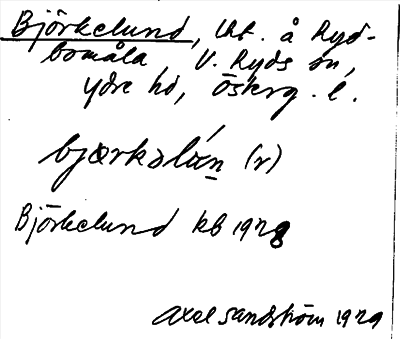 Björkelund, Ut. å Ryd-
bomåla, V. Ryds sn,
Ydre hd, Österg. l.
bjærkəlún (r)
Björkelund kb 1928
Axel Sandström 1929